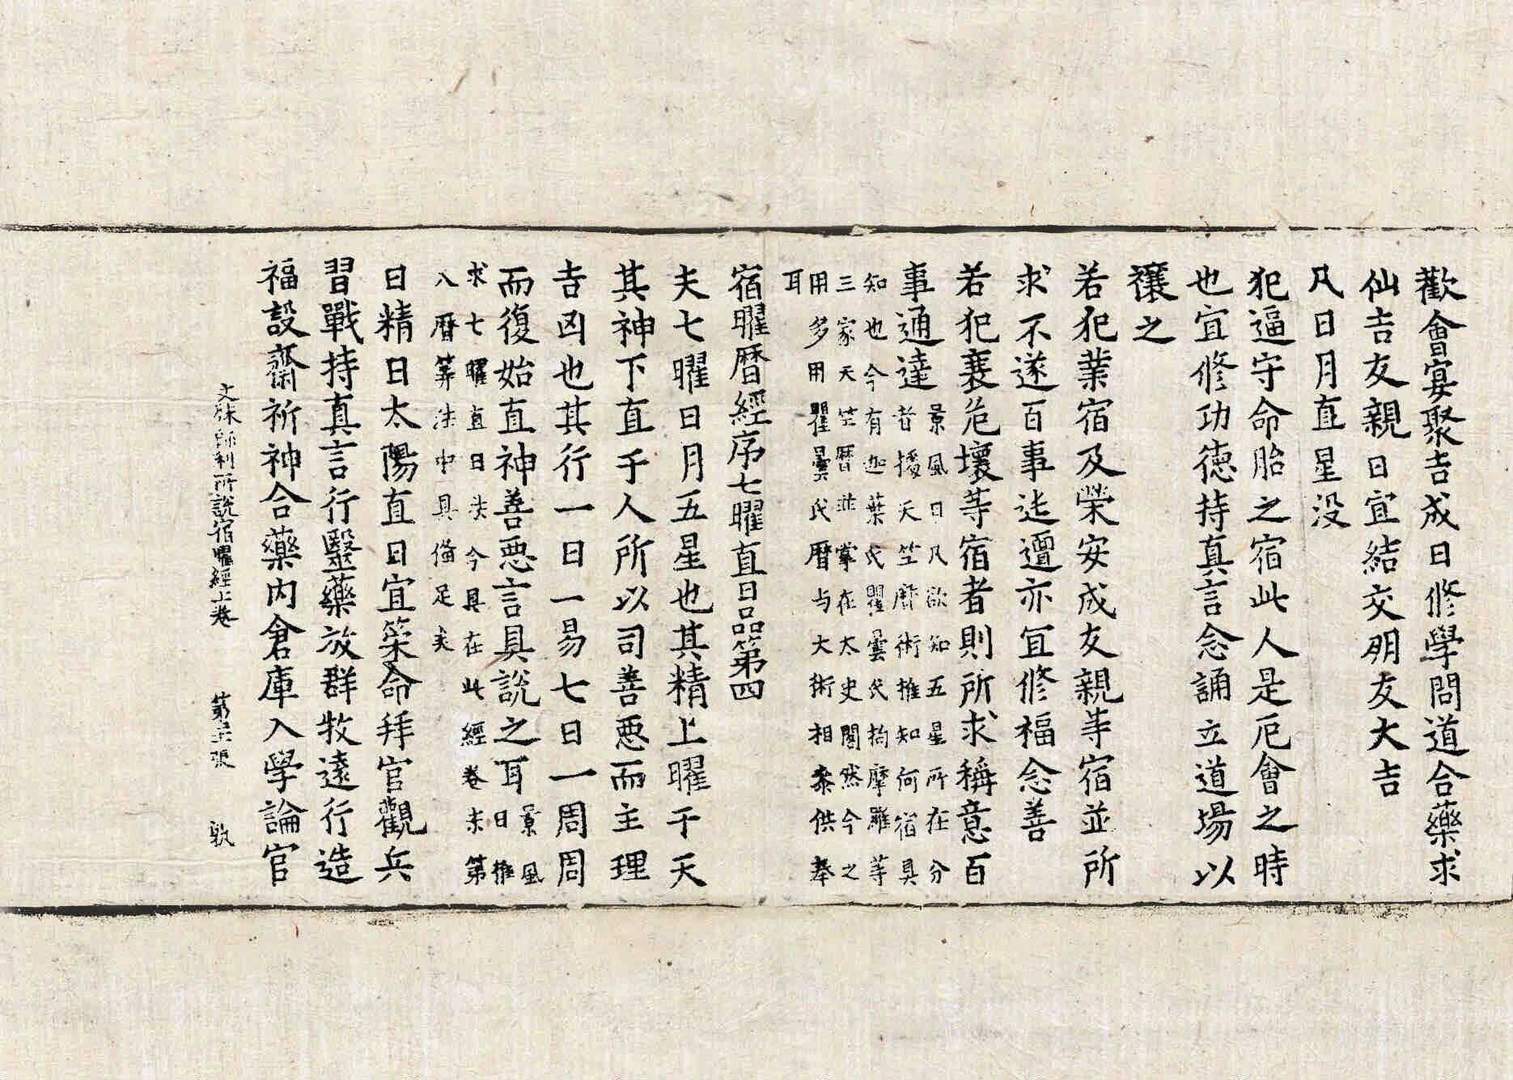 歡會宴聚吉成日修學問道合藥求
仙吉友親日宜結交朋友大吉
凡日月直星没
犯逼守命胎之宿此人是厄會之時
也宜修功德持真言念誦立道場以
禳之
若犯業宿及榮安成友親等宿並所
求不遂百事迍邅亦宜修福念善
若犯衰危壞等宿者則所求稱意百
事通達景風曰凡欲知五星所在分
者據天竺曆術推知何宿具
知也今有迦葉氏瞿曇氏拘摩羅等
三家天竺曆並掌在太史閣然今之
用多用瞿曇氏曆与大術相叅供奉
耳
宿曜曆經序七曜直日品第四
夫七曜日月五星也其精上曜于天
其神下直于人所以司善惡而主理
吉凶也其行一日一易七日一周周
而復始直神善惡言具說之耳景風
曰推
求七曜直日法今具在此經卷末第
八曆筭法中具備足矣
日精日太陽直日宜策命拜官觀兵
習戰持真言行毉藥放群牧遠行造
福設齋祈神合藥内倉庫入學論官
文殊師利所說宿曜經上卷 第 張 敦